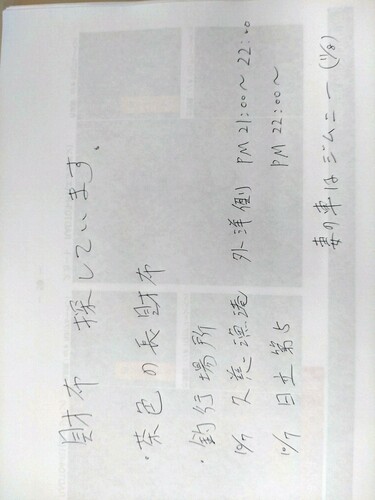 財布 探しています。
・茶色の長財布
・釣行場所
10/7 久慈漁港 外洋側 PM 21:00~22:00
10/7 日立第5 PM 22:00~
妻の車はジムニー (11/8)